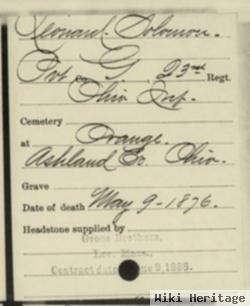 Leonard. Solomon.
Pvt Co. G. 23rd Regt.
Ohio Inf.
Cemetery
at Orange.
Ashland Co. Ohio.
Grave
Date of death May 9-1876.
Headstone supplied by
Gross Brothers,
Lee, Mass.
Contract date June 9, 1888.
Wiki Heritage